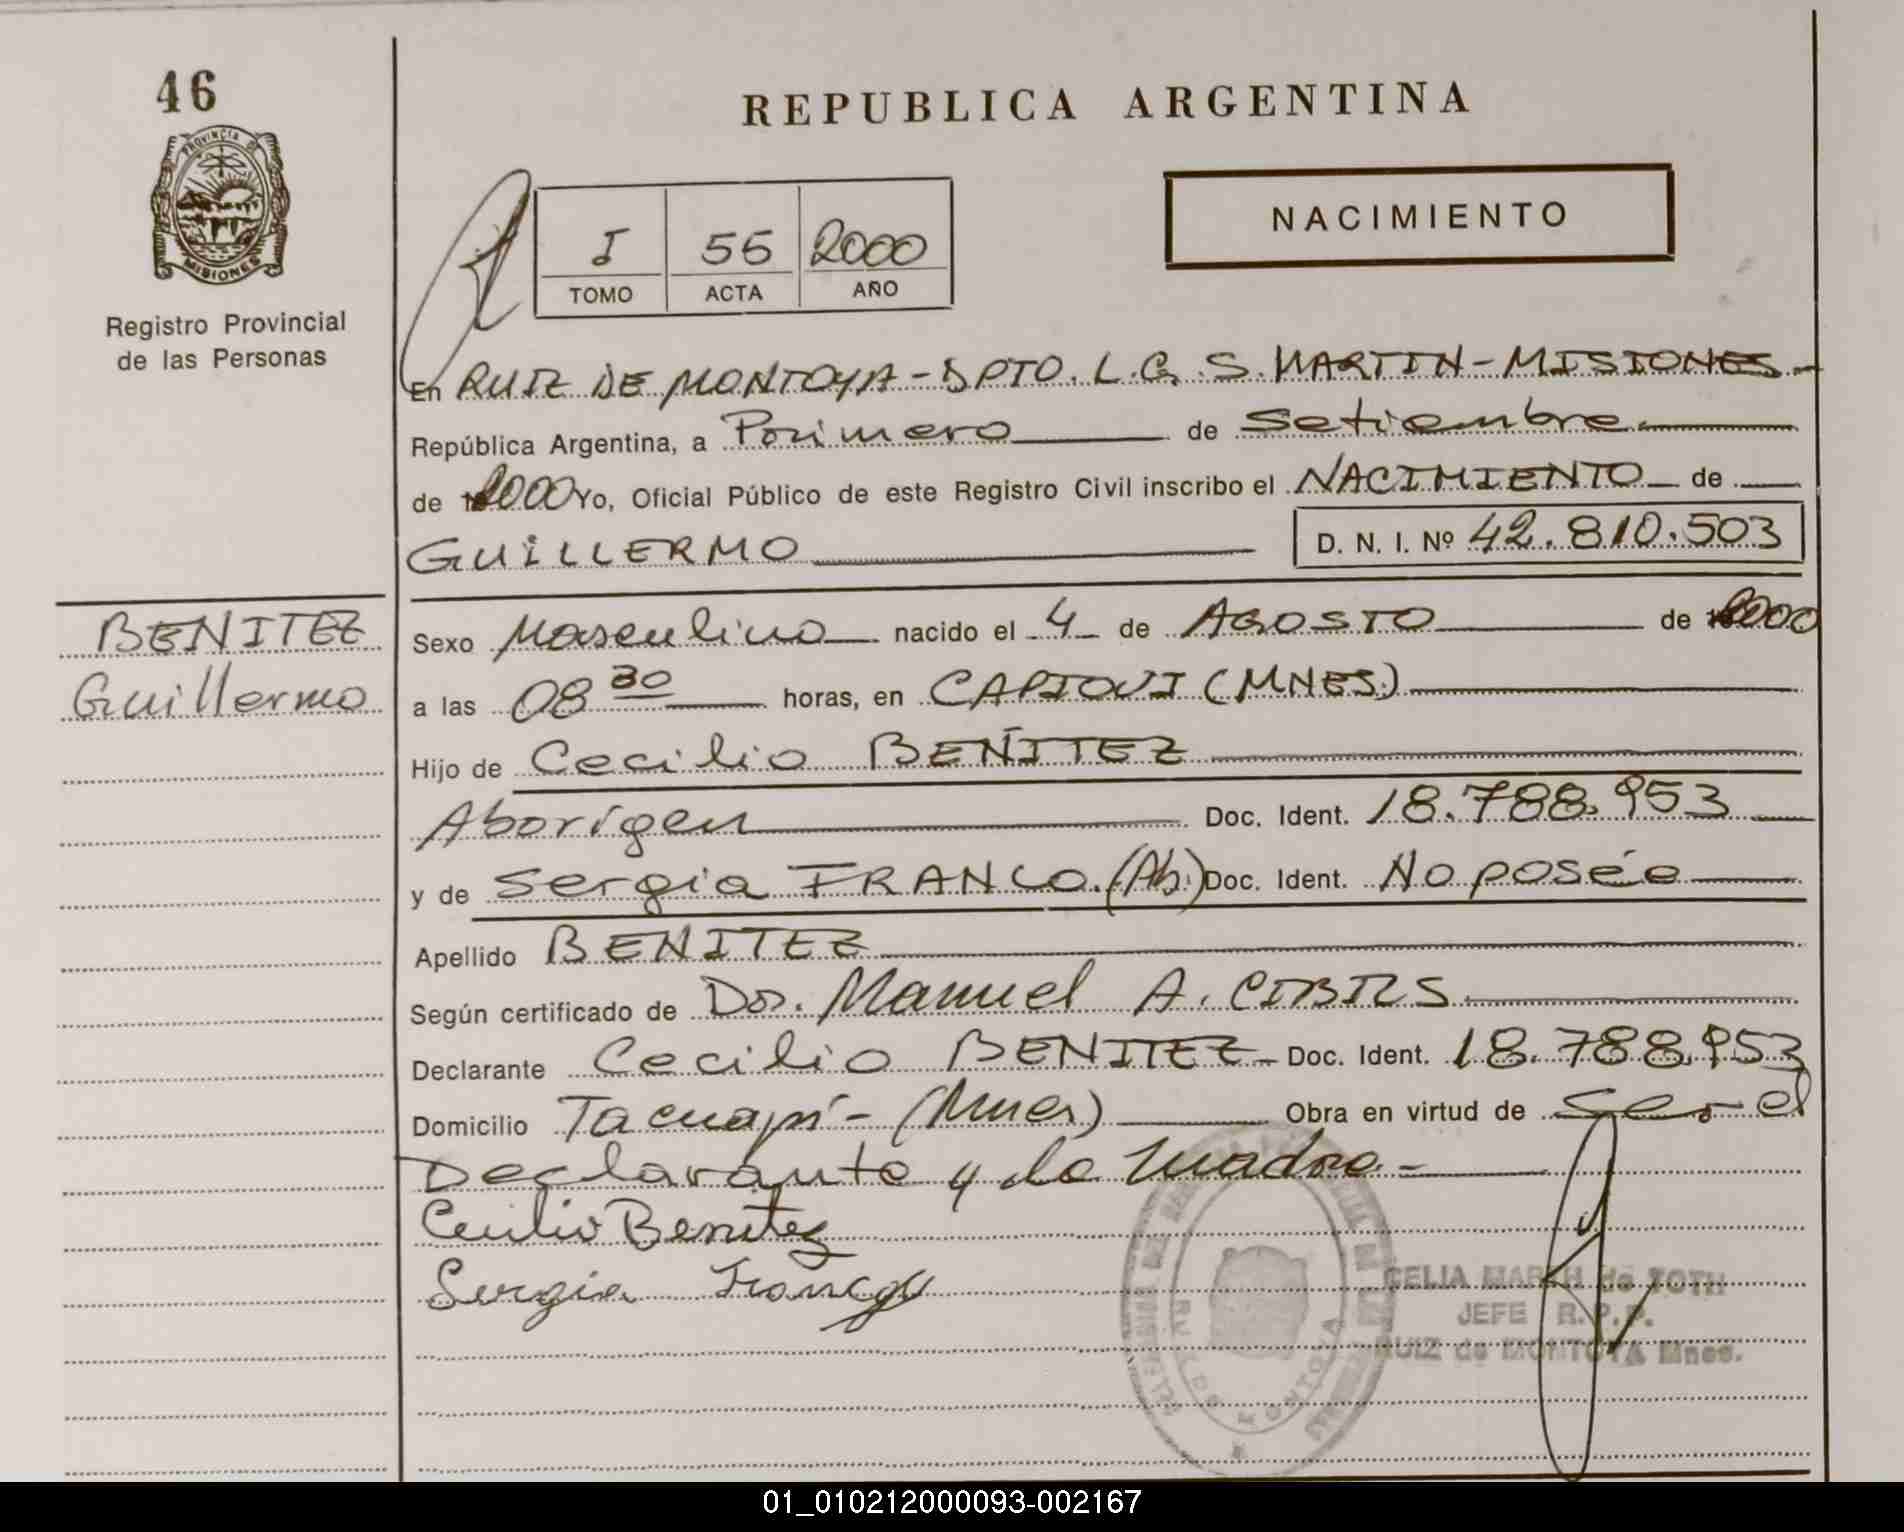 46
PROVINCIA DE
MISIONES
Registro Provincial
de las Personas
REPUBLICA ARGENTINA
NACIMIENTO
I 55 2000
TOMO ACTA AÑO
En RUIZ DE MONTOYA - DPTO. L.G.S. MARTIN - MISIONES -
República Argentina, a Primero de Setiembre
de 2000 Yo, Oficial Público de este Registro Civil inscribo el NACIMIENTO de
GUILLERMO D. N. I. Nº 42.810.503
BENITEZ
Guillermo
Sexo Masculino nacido el 4 de AGOSTO de 2000
a las 08 30 horas, en CAPIOVI (MNES)
Hijo de Cecilio BENITEZ
Aborígen Doc. Ident. 18.788.953
y de Sergia FRANCO. (Ab.) Doc. Ident. No poseé
Apellido BENITEZ
Según certificado de Dr. Manuel A. CIBILS
Declarante Cecilio BENITEZ - Doc. Ident. 18.788.953
Domicilio Tacuapí - (Mnes) Obra en virtud de ser el
Declarante y la madre -
Cecilio Benitez
Sergia Franco
CELIA MARCH de TOTH
JEFE R.P.P.
RUIZ de MONTOYA Mnes.
01_010212000093-002167